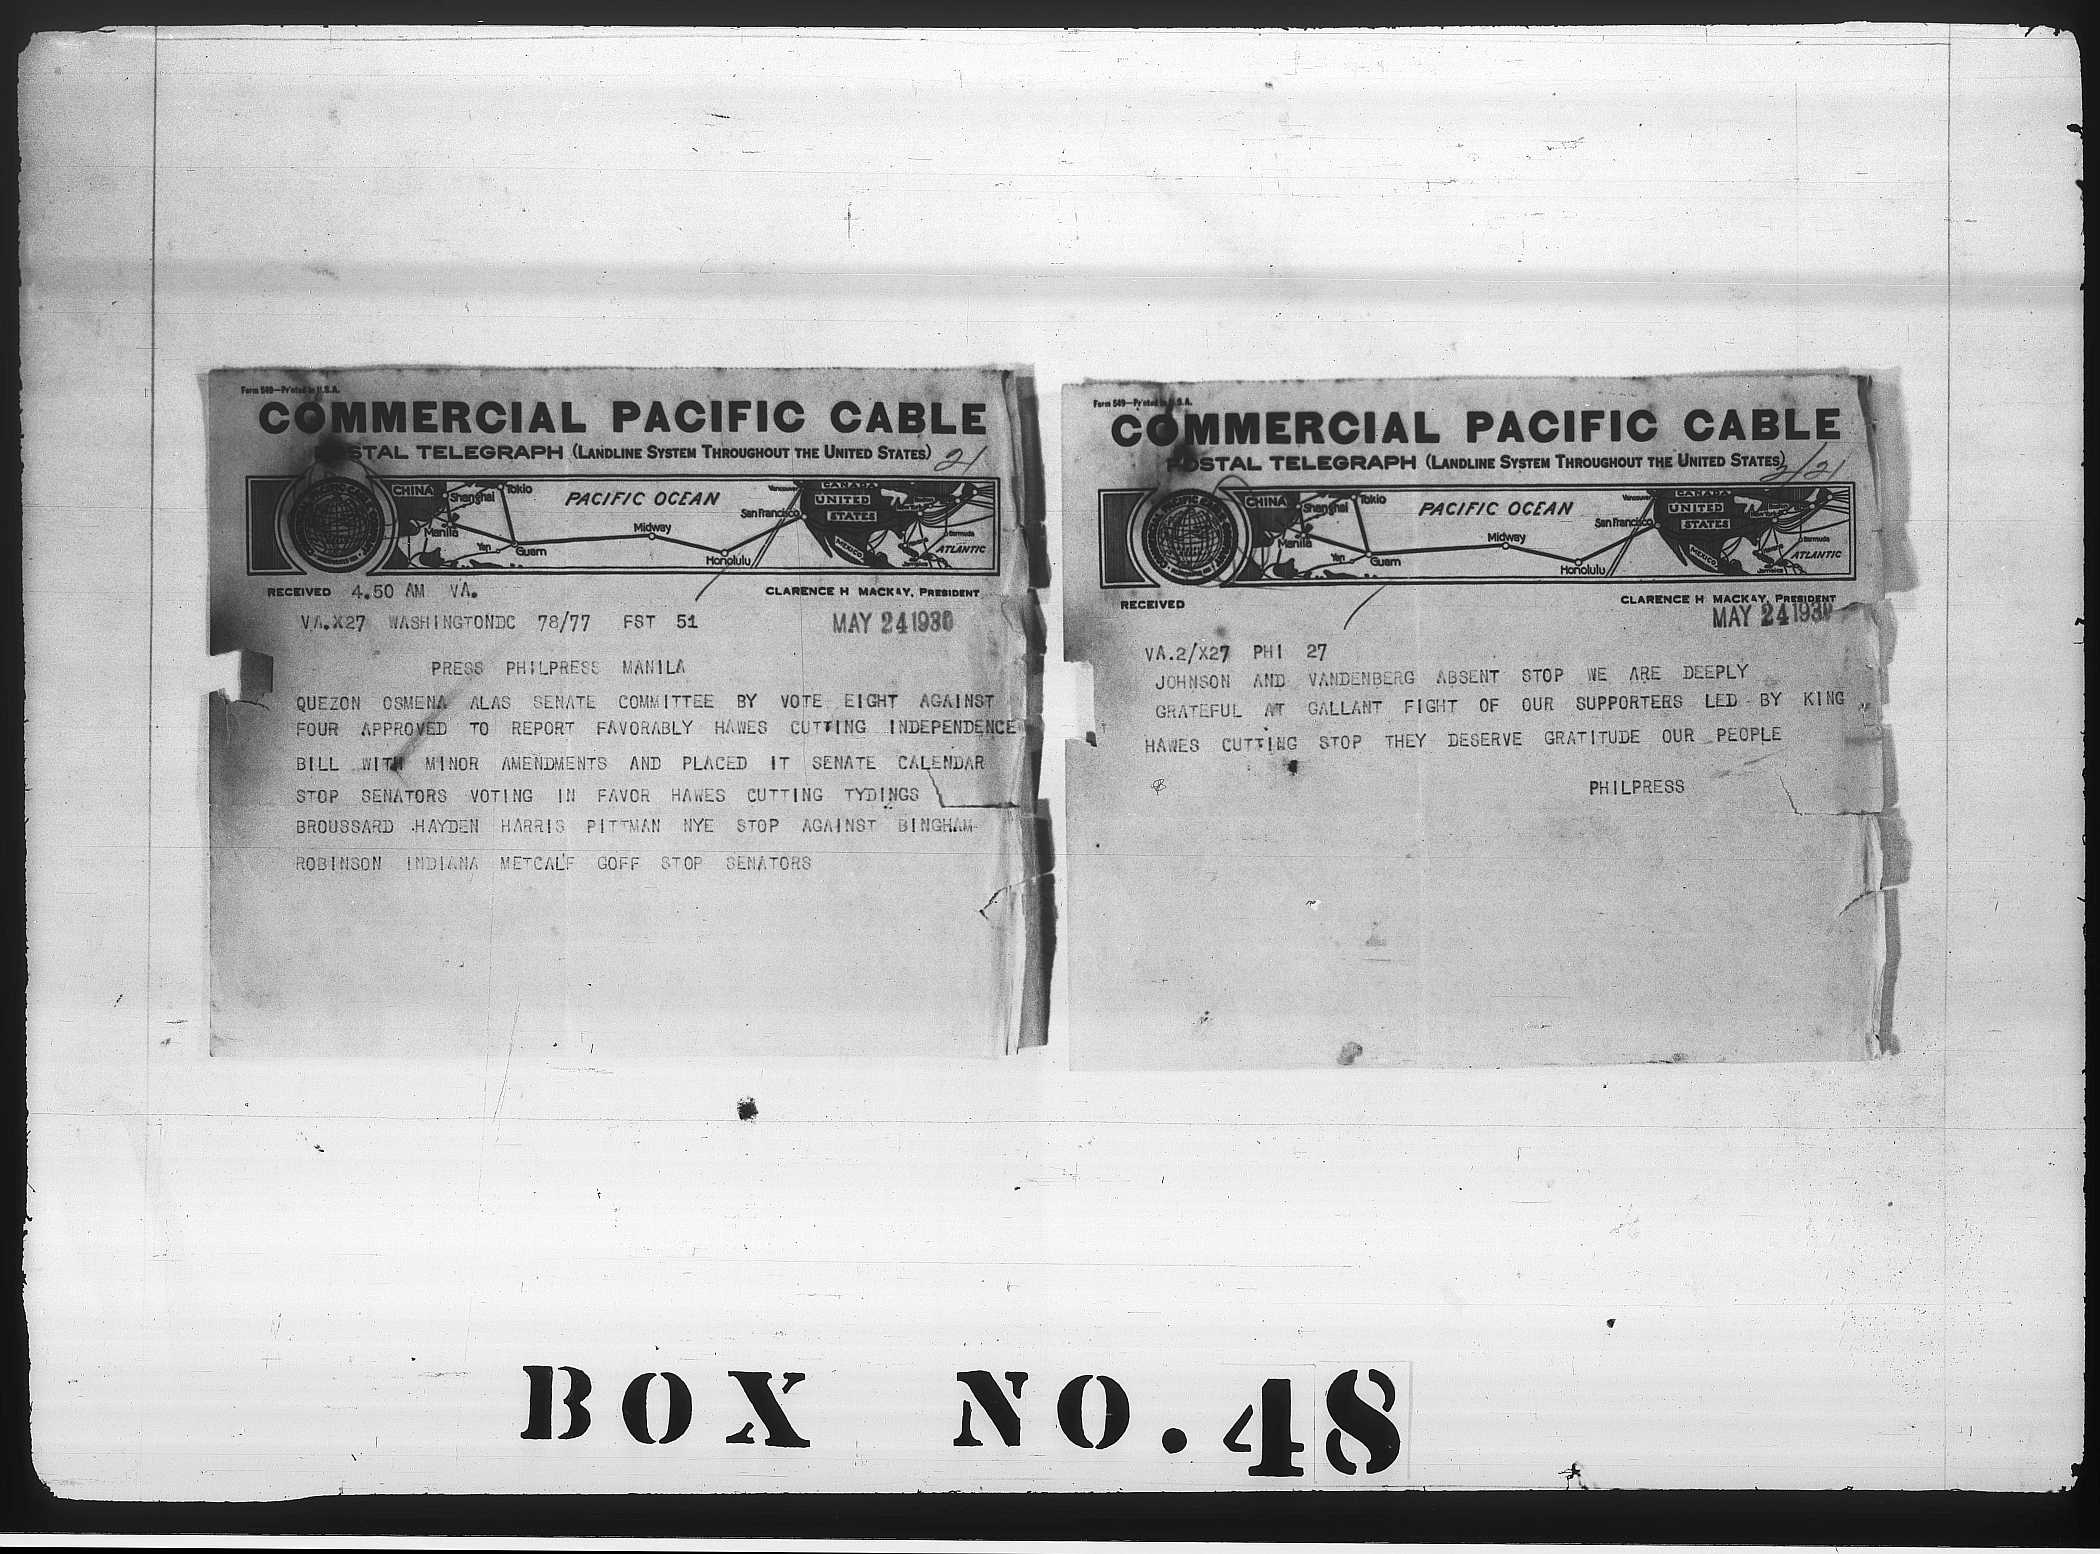 Form 549—Printed in U.S.A.
COMMERCIAL PACIFIC CABLE
POSTAL TELEGRAPH (LANDLINE SYSTEM THROUGHOUT THE UNITED STATES)
21
CHINA
Shanghai
Tokio
PACIFIC OCEAN
Vancouver
CANADA
UNITED
STATES
San Francisco
Manila
Yap
Guam
Midway
Honolulu
MEXICO
Bermuda
ATLANTIC
Jamaica
RECEIVED 4.50 AM VA.
CLARENCE H MACKAY, PRESIDENT
VA.X27 WASHINGTONDC 78/77 FST 51
MAY 24 1930
PRESS PHILPRESS MANILA
QUEZON OSMENA ALAS SENATE COMMITTEE BY VOTE EIGHT AGAINST
FOUR APPROVED TO REPORT FAVORABLY HAWES CUTTING INDEPENDENCE
BILL WITH MINOR AMENDMENTS AND PLACED IT SENATE CALENDAR
STOP SENATORS VOTING IN FAVOR HAWES CUTTING TYDINGS
BROUSSARD HAYDEN HARRIS PITTMAN NYE STOP AGAINST BINGHAM
ROBINSON INDIANA METCALF GOFF STOP SENATORS
Form 549—Printed in U.S.A.
COMMERCIAL PACIFIC CABLE
POSTAL TELEGRAPH (LANDLINE SYSTEM THROUGHOUT THE UNITED STATES)
2/21
CHINA
Shanghai
Tokio
PACIFIC OCEAN
Vancouver
CANADA
UNITED
STATES
San Francisco
Manila
Yap
Guam
Midway
Honolulu
MEXICO
Bermuda
ATLANTIC
Jamaica
RECEIVED
CLARENCE H MACKAY, PRESIDENT
MAY 24 1930
VA.2/X27 PHI 27
JOHNSON AND VANDENBERG ABSENT STOP WE ARE DEEPLY
GRATEFUL AT GALLANT FIGHT OF OUR SUPPORTERS LED BY KING
HAWES CUTTING STOP THEY DESERVE GRATITUDE OUR PEOPLE
PHILPRESS
BOX NO. 48